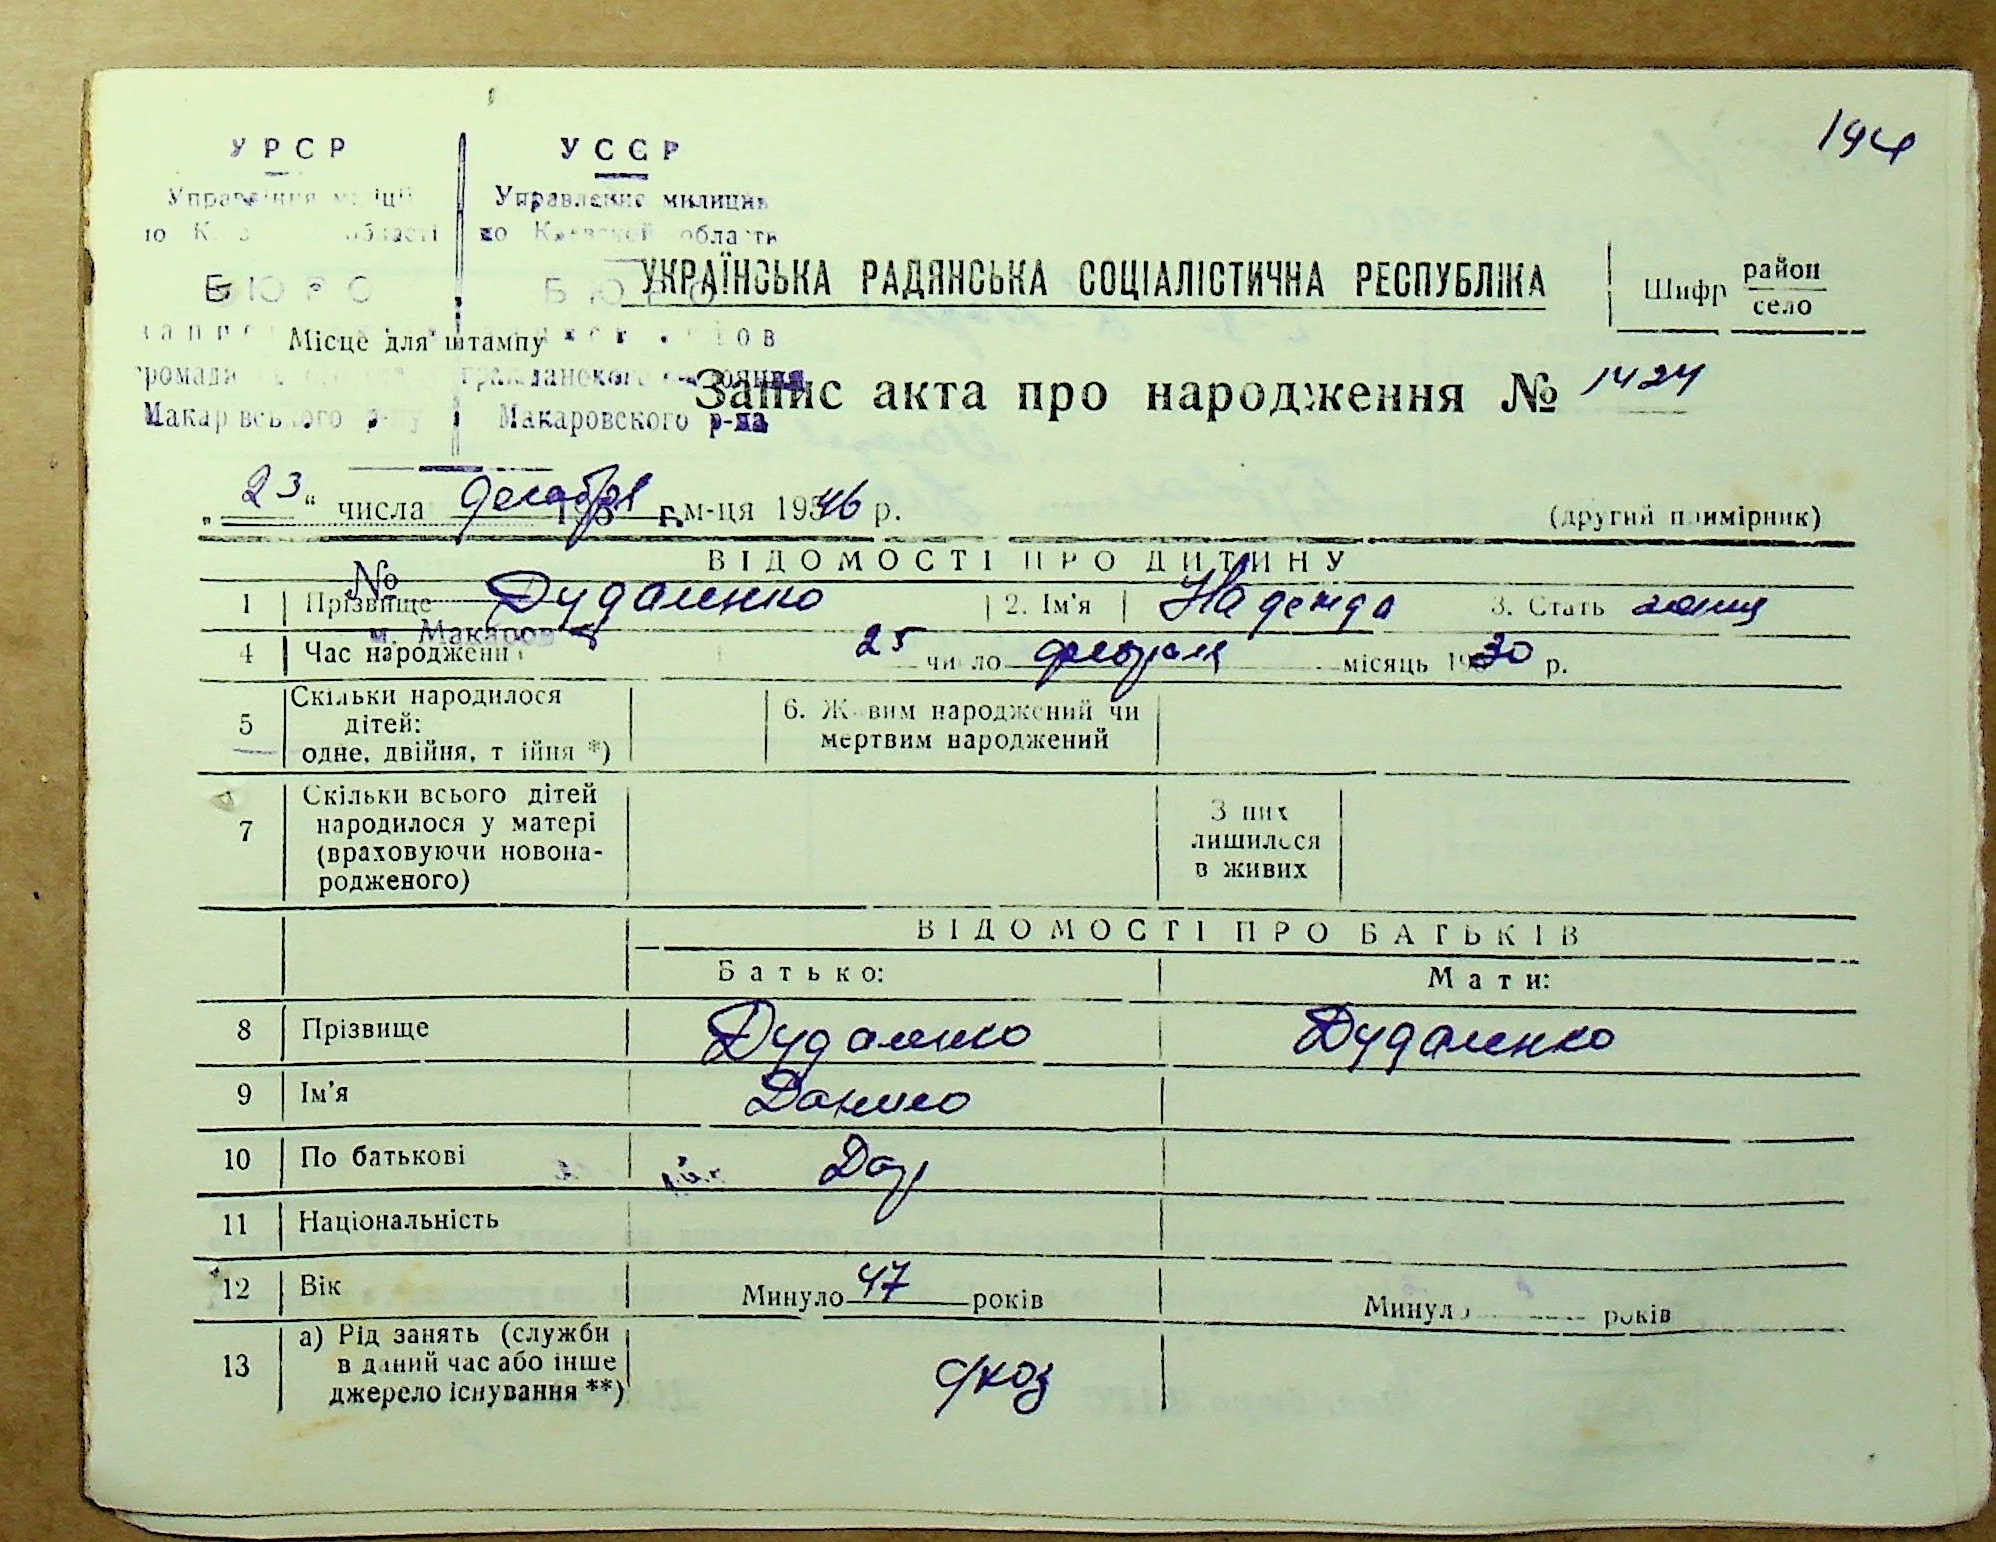 194
УРСР УССР
Управління міліції Управление милиции
по К області по Киевской области
БЮРО БЮРО
УКРАЇНСЬКА РАДЯНСЬКА СОЦІАЛІСТИЧНА РЕСПУБЛІКА
Шифр район село
Місце для штампу
Запис акта про народження № 1424
Макарівського р-ну Макаровского р-на
„23“ числа декабря м-ця 1946 р.
(другий примірник)
ВІДОМОСТІ ПРО ДИТИНУ
№
1 Прізвище Дудаленко 2. Ім'я Надежда 3. Стать женщ
м. Макаров
4 Час народження 25 число февраля місяць 1930 р.
5 Скільки народилося дітей: одне, двійня, трійня *) 6. Живим народжений чи мертвим народжений
7 Скільки всього дітей народилося у матері (враховуючи новонародженого) З них лишилося в живих
ВІДОМОСТІ ПРО БАТЬКІВ
Батько: Мати:
8 Прізвище Дудаленко Дудаленко
9 Ім'я Данило
10 По батькові
11 Національність
12 Вік Минуло 47 років Минуло років
13 а) Рід занять (служби в даний час або інше джерело існування **)